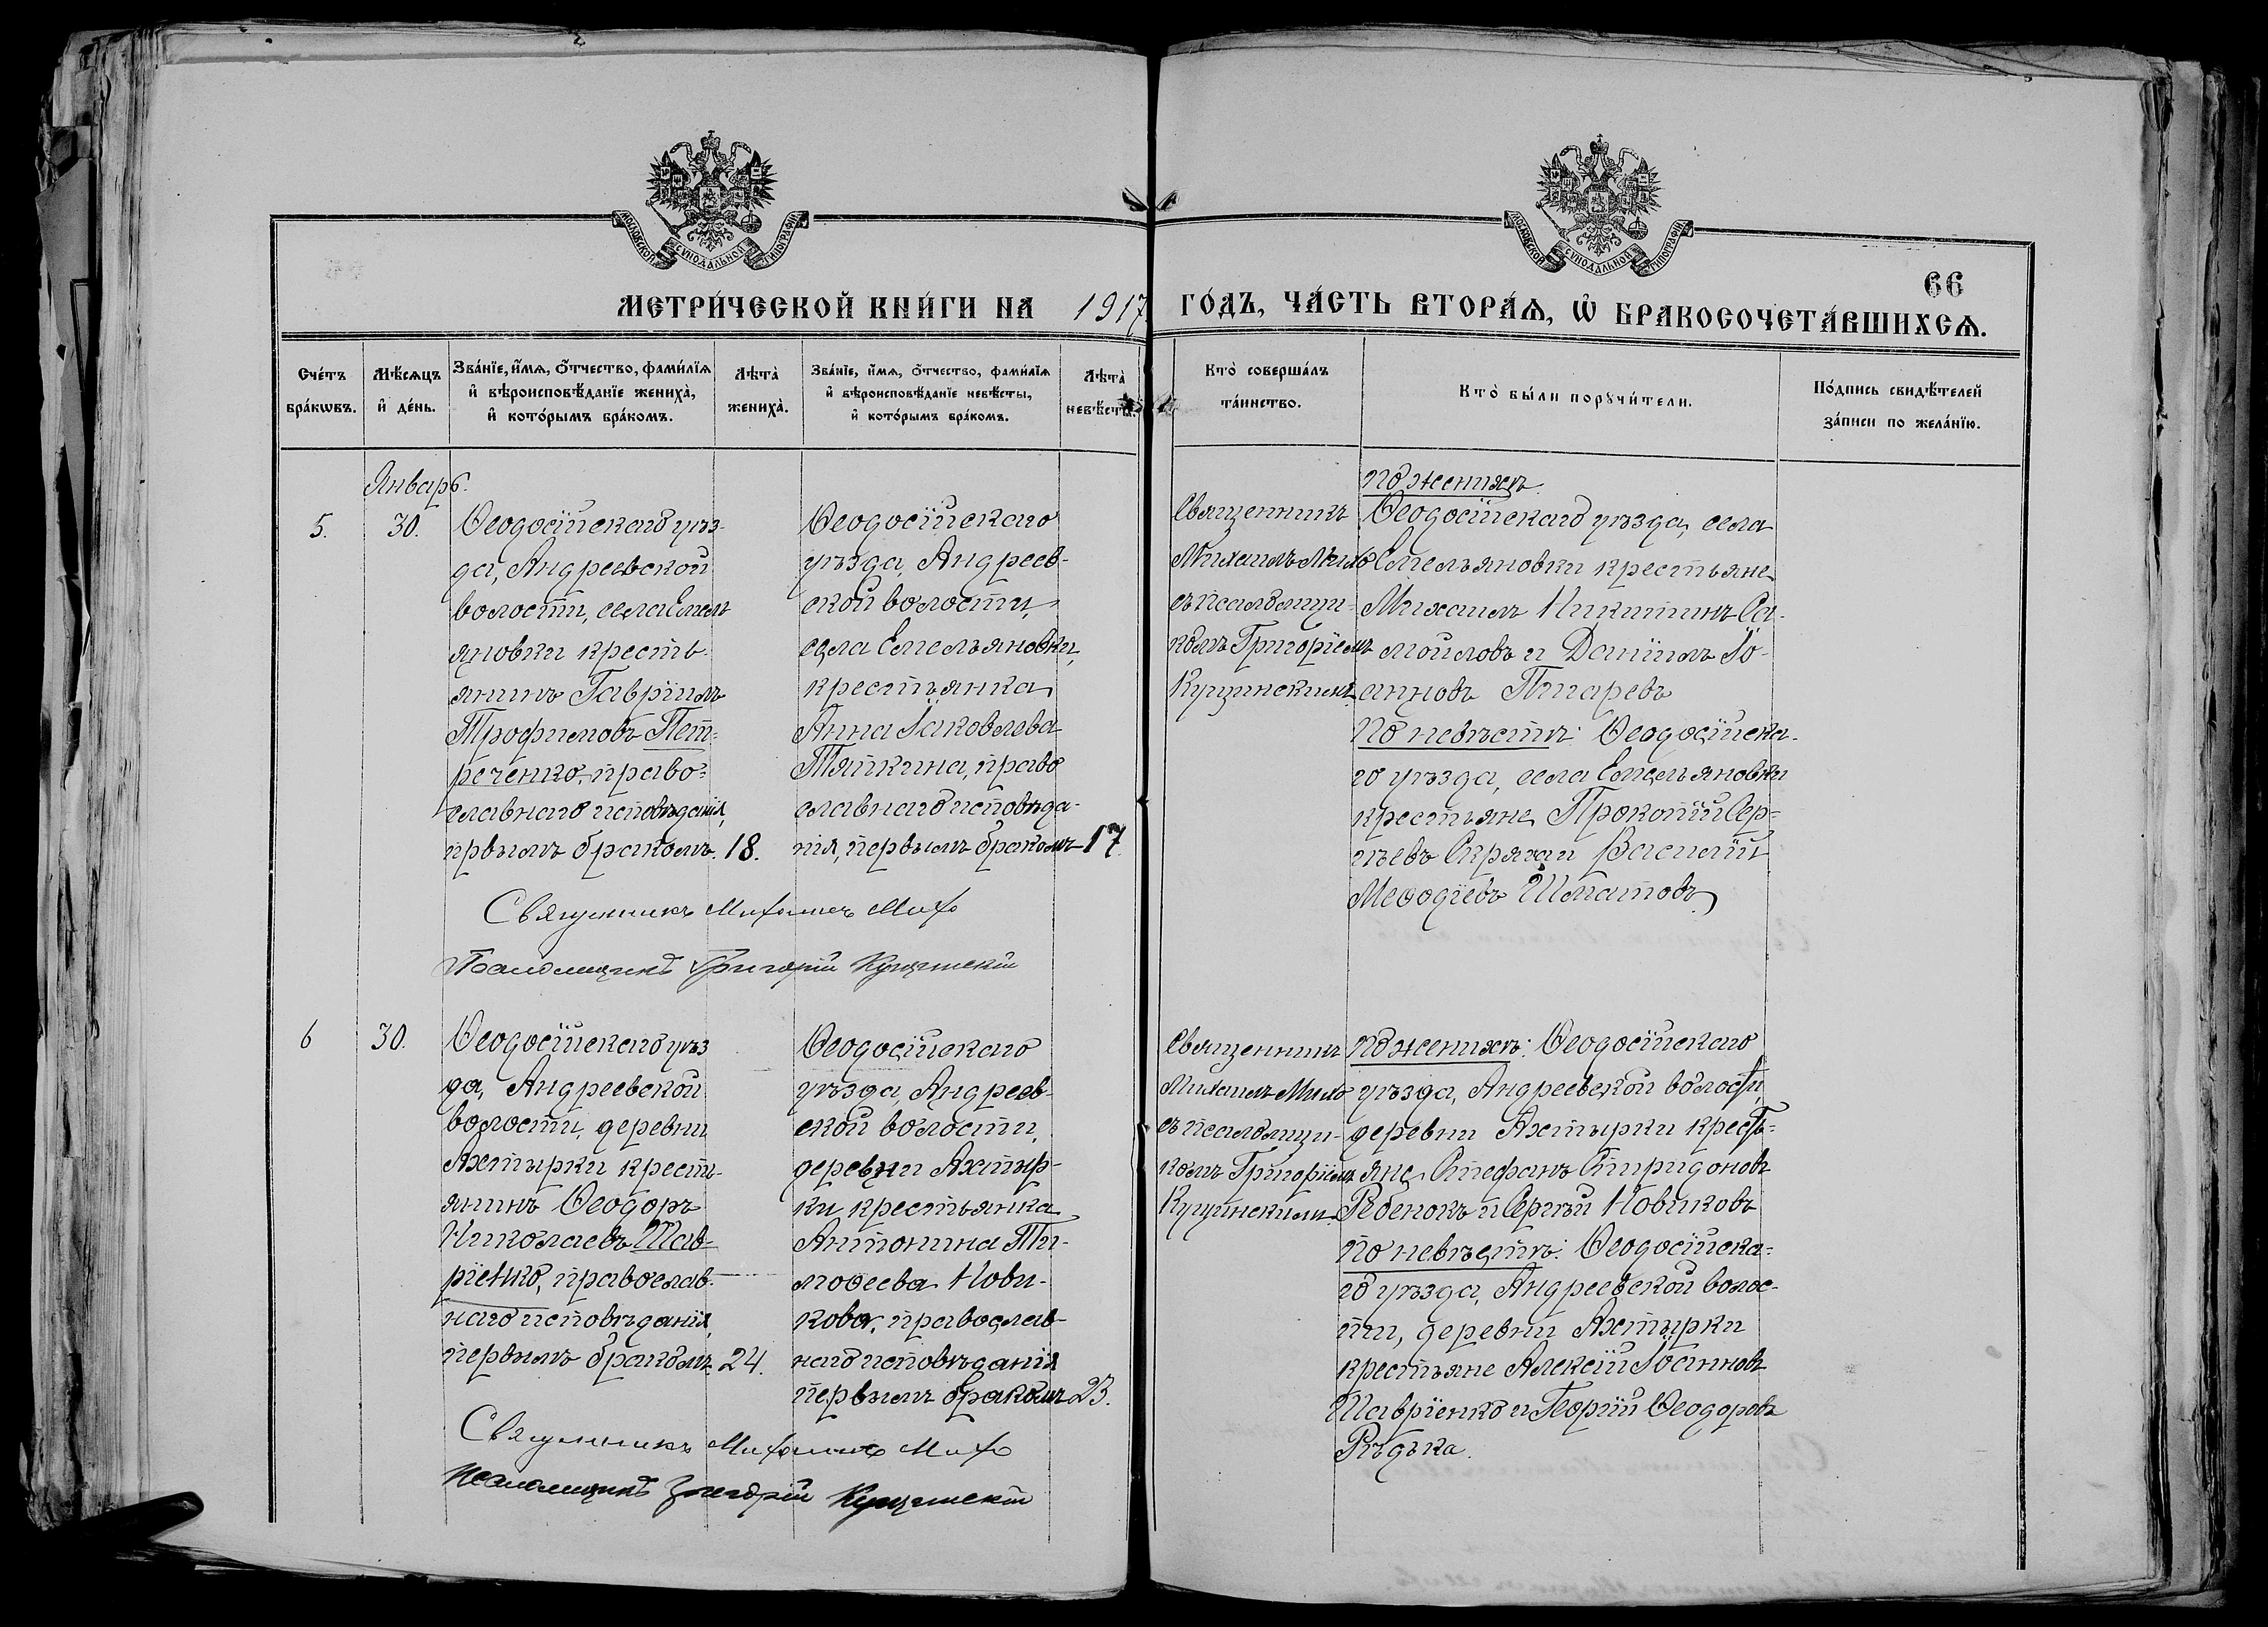 МОСКОВСКОЙ СѴНОДАЛЬНОЙ ТИПОГРАФІИ
МОСКОВСКОЙ СѴНОДАЛЬНОЙ ТИПОГРАФІИ
66
МЕТРИ́ЧЕСКОЙ КНИ́ГИ НА 1917 ГО́ДЪ, ЧА́СТЬ ВТОРА́Ѧ, Ѡ БРАКОСОЧЕТА́ВШИХСѦ.
Сче́тъ бра́кѡвъ.
Мѣ́сѧцъ и҆ де́нь.
Зва́нїе, и҆́мѧ, ѻ҆́тчество, фами́лїѧ
и҆ вѣроисповѣ́данїе жениха̀,
и҆ кото́рымъ бра́комъ.
Лѣта̀ жениха̀.
Зва́нїе, и҆́мѧ, ѻ҆́тчество, фами́лїѧ
и҆ вѣроисповѣ́данїе невѣ́сты,
и҆ кото́рымъ бра́комъ.
Лѣта̀ невѣ́сты.
Кто̀ соверша́лъ
та́инство.
Кто̀ бы́ли порꙋчи́тели.
По́дпись свидѣ́телей
за́писи по жела́нїю.
Январь.
5.
30.
Ѳеодосійскаго уѣз-
да, Андреевской
волости, села Емель
яновки кресть-
янинъ Гавріилъ
Трофимовъ Пет-
реченко, право-
славнаго исповѣданія,
првымъ бракомъ. 18.
Ѳеодосійскаго
уѣзда, Андреев-
ской волости,
села Емельяновки,
крестьянка
Анна Іаковлева
Тяпкина, право
славнаго исповѣда-
нія, первымъ бракомъ 17
Священникъ
Михаилъ Михо
съ псаломщи-
комъ Григоріемъ
Кущинскимъ.
по женихѣ:
Ѳеодосійскаго уѣзда, села
Емельяновки крестьяне
Михаилъ Никитинъ Са-
мойловъ и Даніилъ Іо-
анновъ Писаревъ
По невѣстѣ: Ѳеодосійска-
го уѣзда, села Емельяновки
крестьяне Прокопій Сер-
гѣевъ и Василій
Меѳодіевъ Шматовъ.
Священникъ Михаилъ Михо
Псаломщикъ Григорій Кущинскій
6
30.
Ѳеодосійскаго уѣз
да, Андреевской
волости, деревни
Ахтырки кресть-
янинъ Ѳеодоръ
Николаевъ Шав-
ріенко, православ-
наго исповѣданія,
первымъ бракомъ. 24.
Ѳеодосійскаго
уѣзда, Андреев-
ской волости,
деревни Ахтыр-
ки крестьянка
Антонина Ти-
моѳеева Нови-
кова, православ-
наго исповѣданія
первымъ бракомъ 23.
Священникъ
Михаилъ Михо
съ псаломщи-
комъ Григоріемъ
Кущинскимъ.
по женихѣ: Ѳеодосійскаго
уѣзда, Андреевской волости,
деревни Ахтырки кресть-
яне Стефанъ Спиридоновъ
Ребенокъ и Сергѣй Новиковъ
По невѣстѣ: Ѳеодосійска-
го уѣзда, Андреевской волос-
ти, деревни Ахтырки
крестьяне Алексій Іоанновъ
Шавріенко и Георгій Ѳеодоровъ
Рѣдька.
Священникъ Михаилъ Михо
Псаломщикъ Григорій Кущинскій